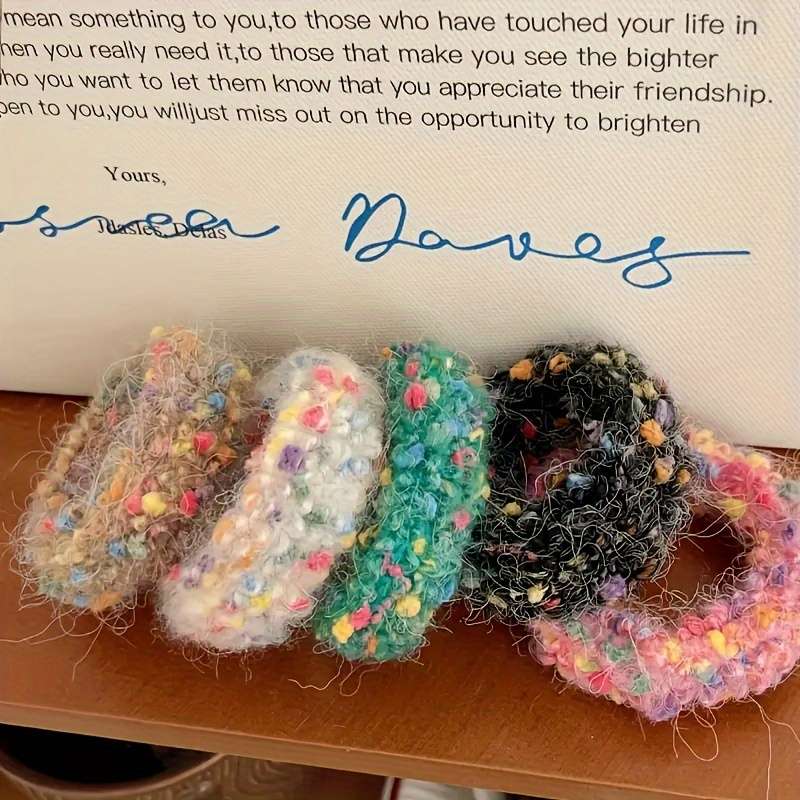 mean something to you,to those who have touched your life in
hen you really need it,to those that make you see the bighter
ho you want to let them know that you appreciate their friendship.
pen to you,you willjust miss out on the opportunity to brighten
Yours,
Daves